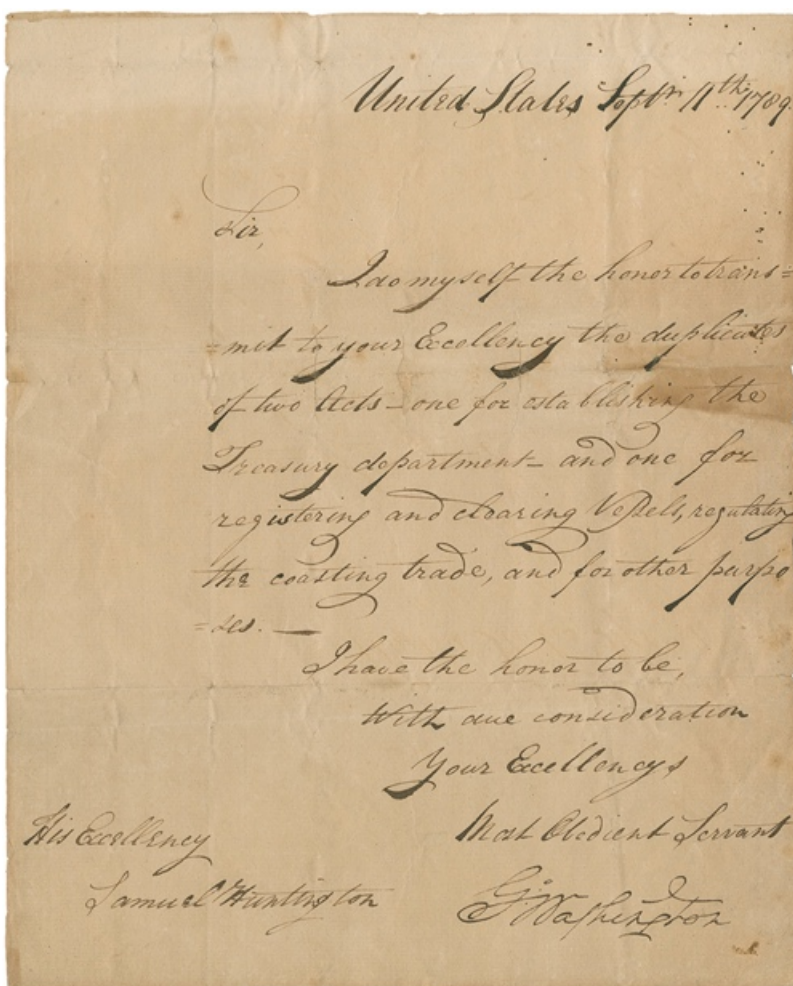 United States Septr. 11th. 1789.
Sir,
I do myself the honor to trans=
=mit to your Excellency the duplicates
of two Acts – one for establishing the
Treasury department – and one for
registering and clearing Vessels, regulating
the coasting trade, and for other purpo
=ses. —
I have the honor to be,
With due consideration
Your Excellencys
Most Obedient Servant
His Excellency
Samuel Huntington
Go: Washington